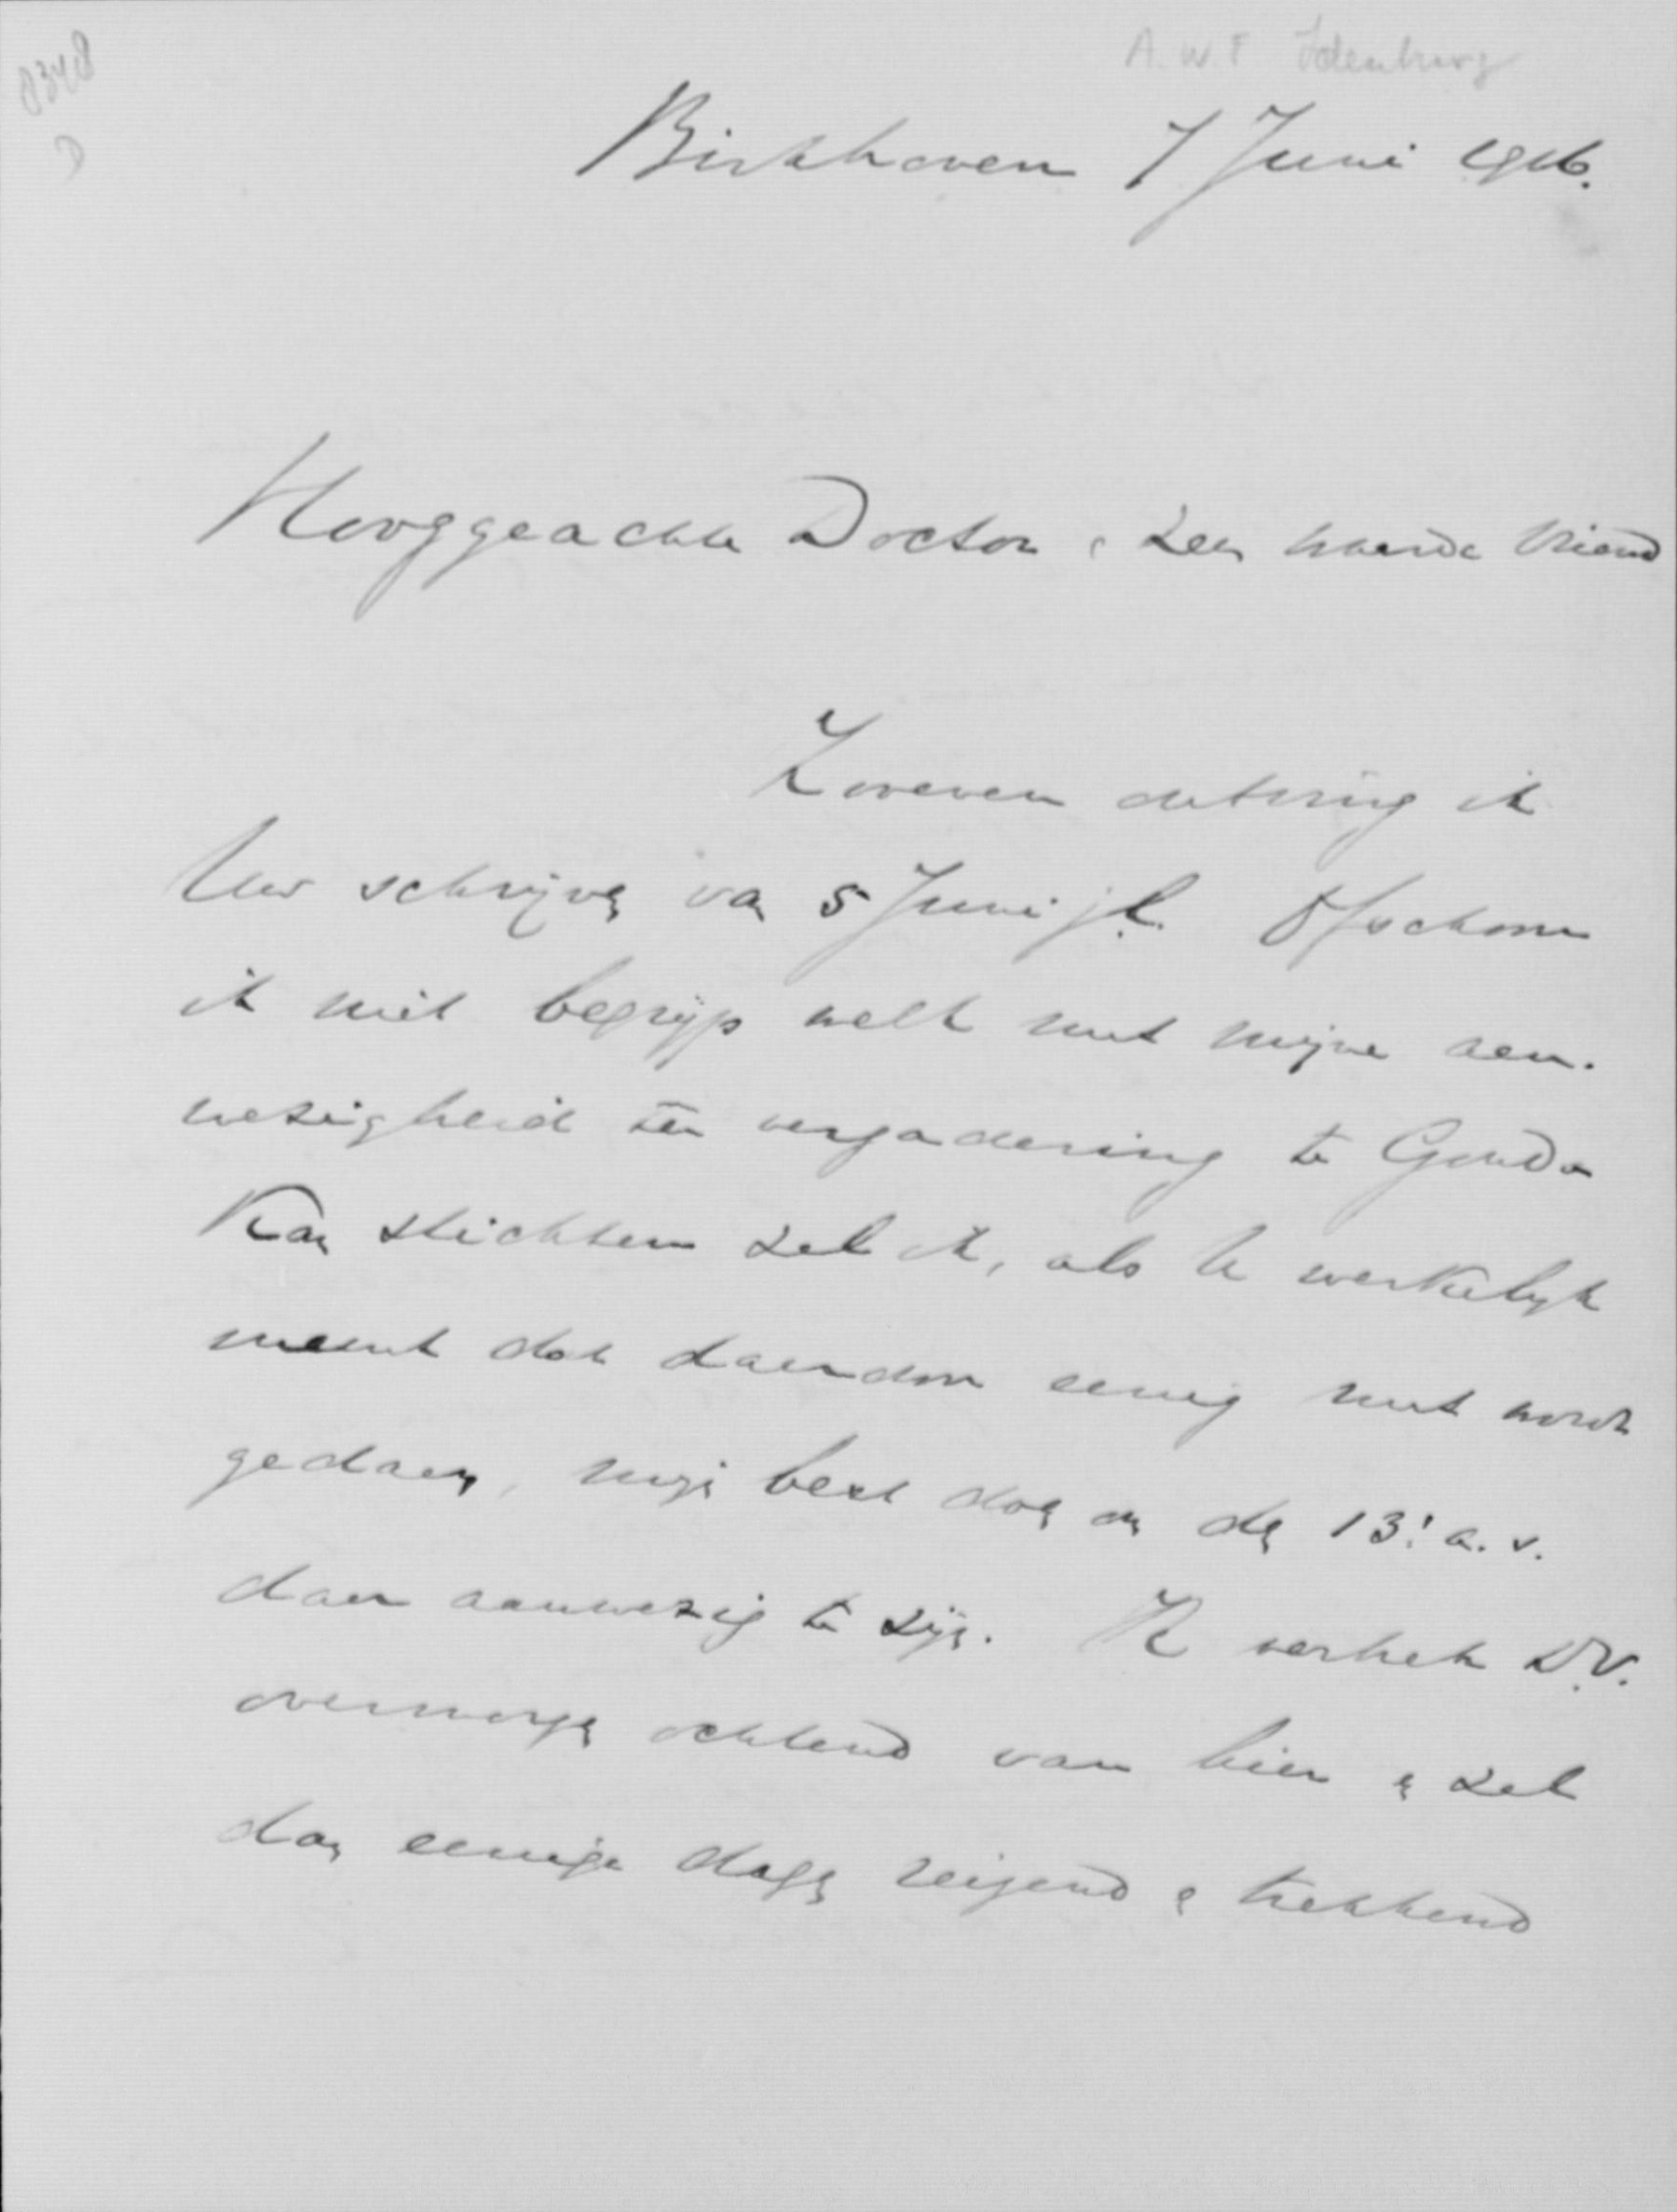 A.W.F Idenburg
8348
D
Birkhoven 7 Juni 1916.
Hooggeachte Doctor & zeer waarde Vriend
Zoo even ontving ik
Uw schrijven van 5 Juni jl. Ofschoon
ik niet begrijp welk nut mijne aan-
wezigheid ter vergadering te Gouda
kan stichten zal ik, als U werkelijk
meent dat daardoor eenig nut wordt
gedaan, mijn best doen om den 13e a.s.
daar aanwezig te zijn. Ik vertrek D.V.
overmorgen ochtend van hier & zal
dan eenige dagen reizend & trekkend